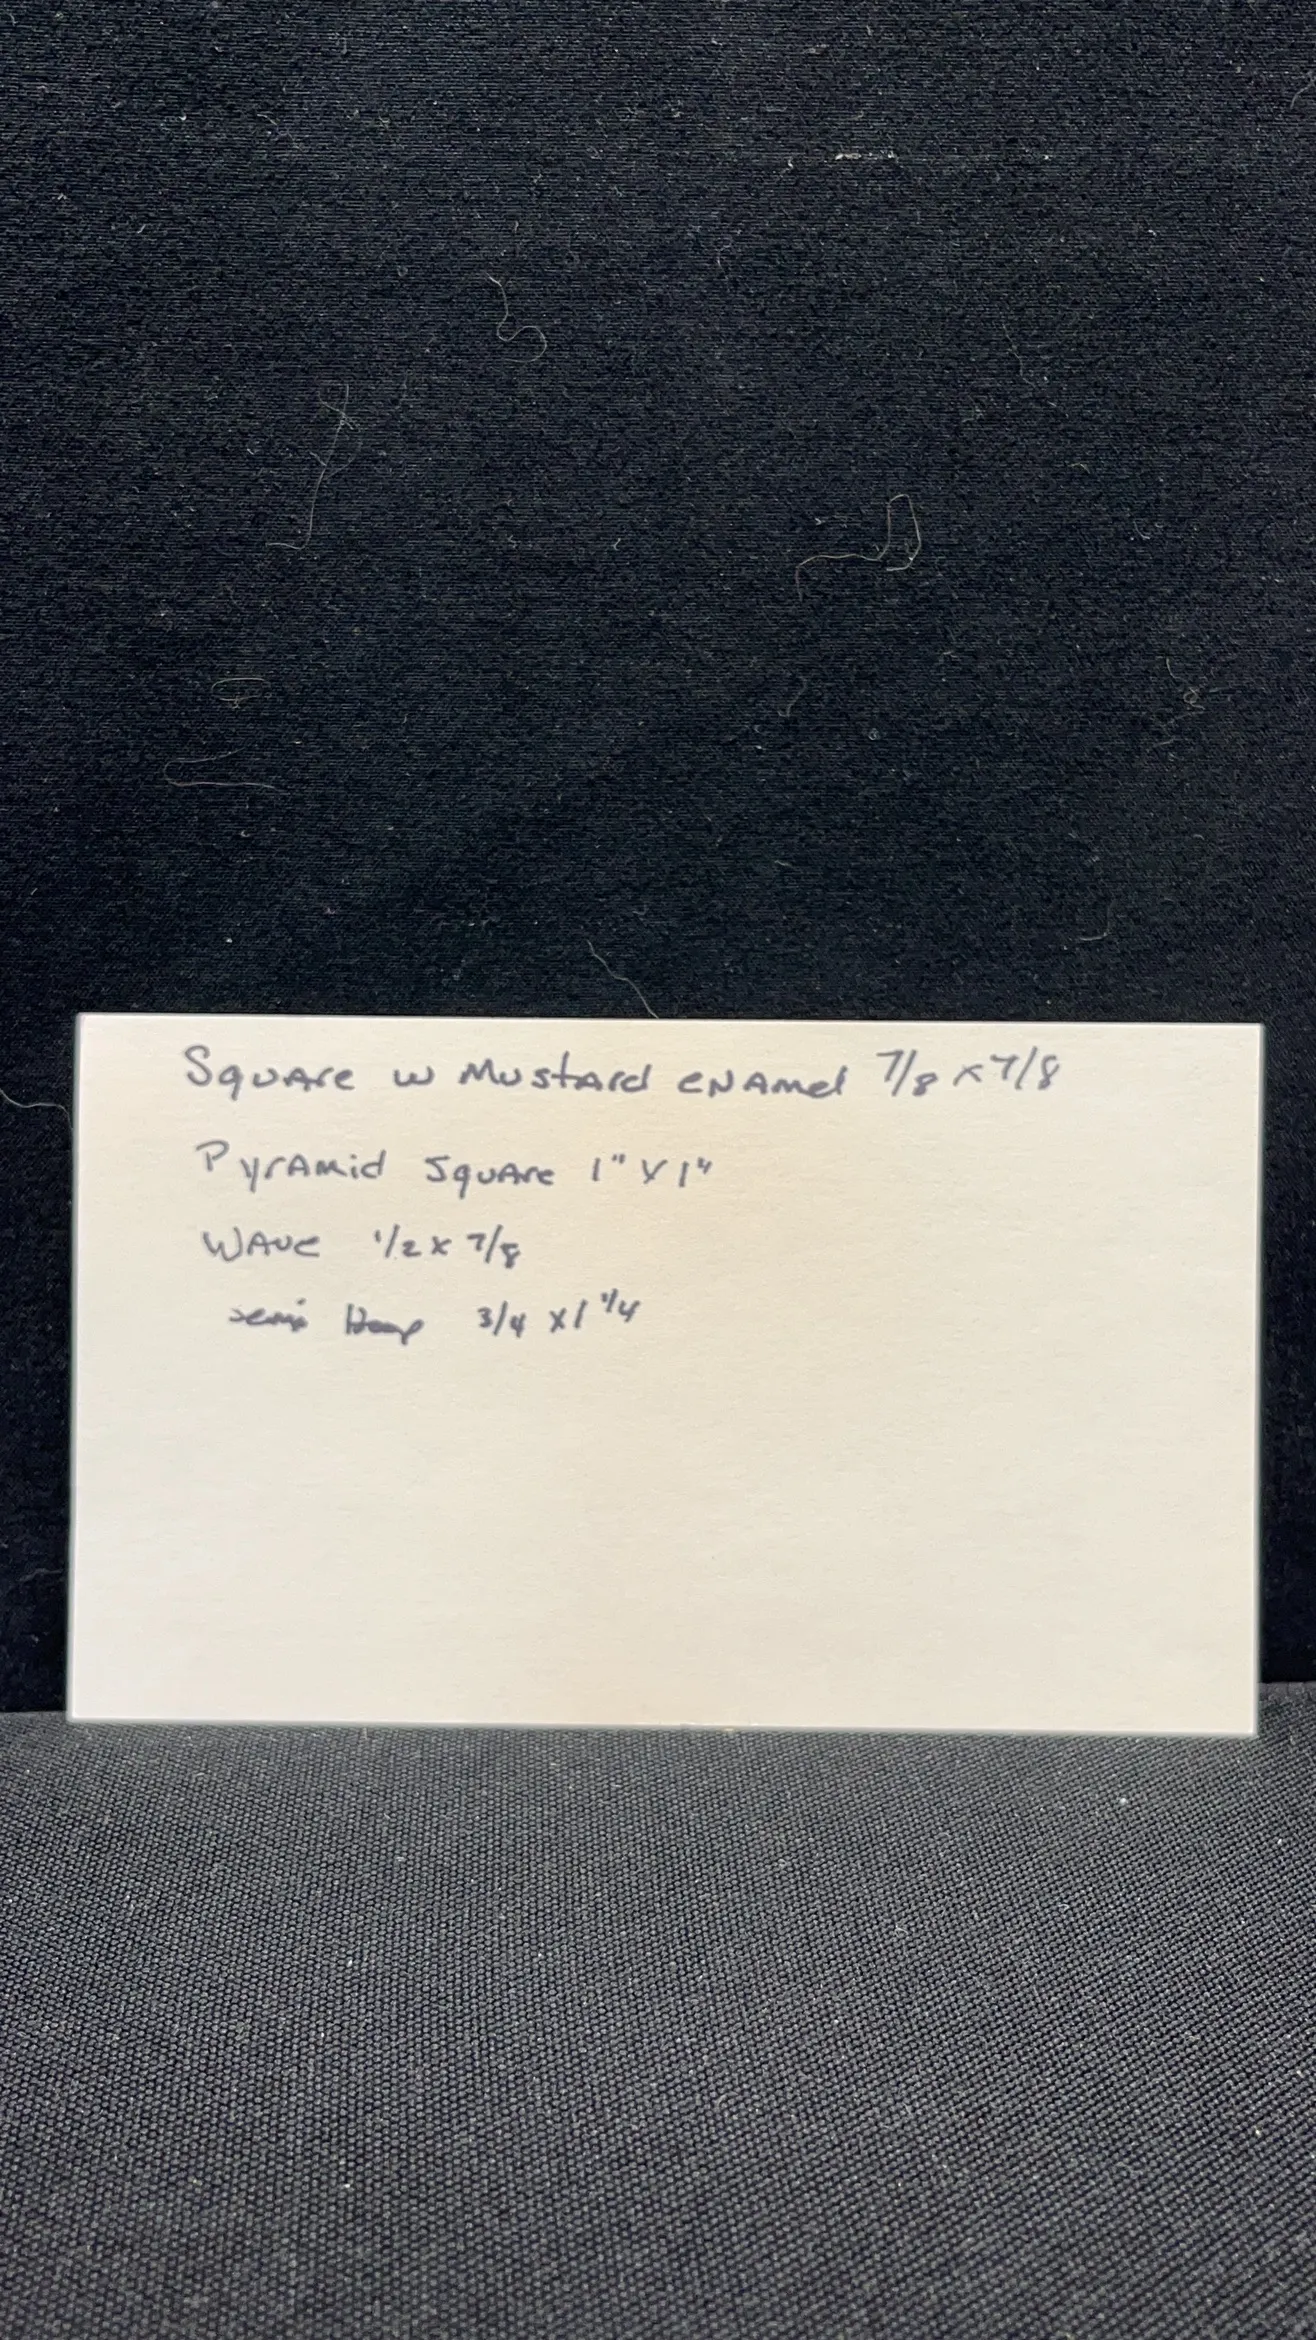 Square w Mustard enamel 7/8 x 7/8
Pyramid Square 1" x 1"
Wave 1/2 x 7/8
semi Hoop 3/4 x 1 1/4